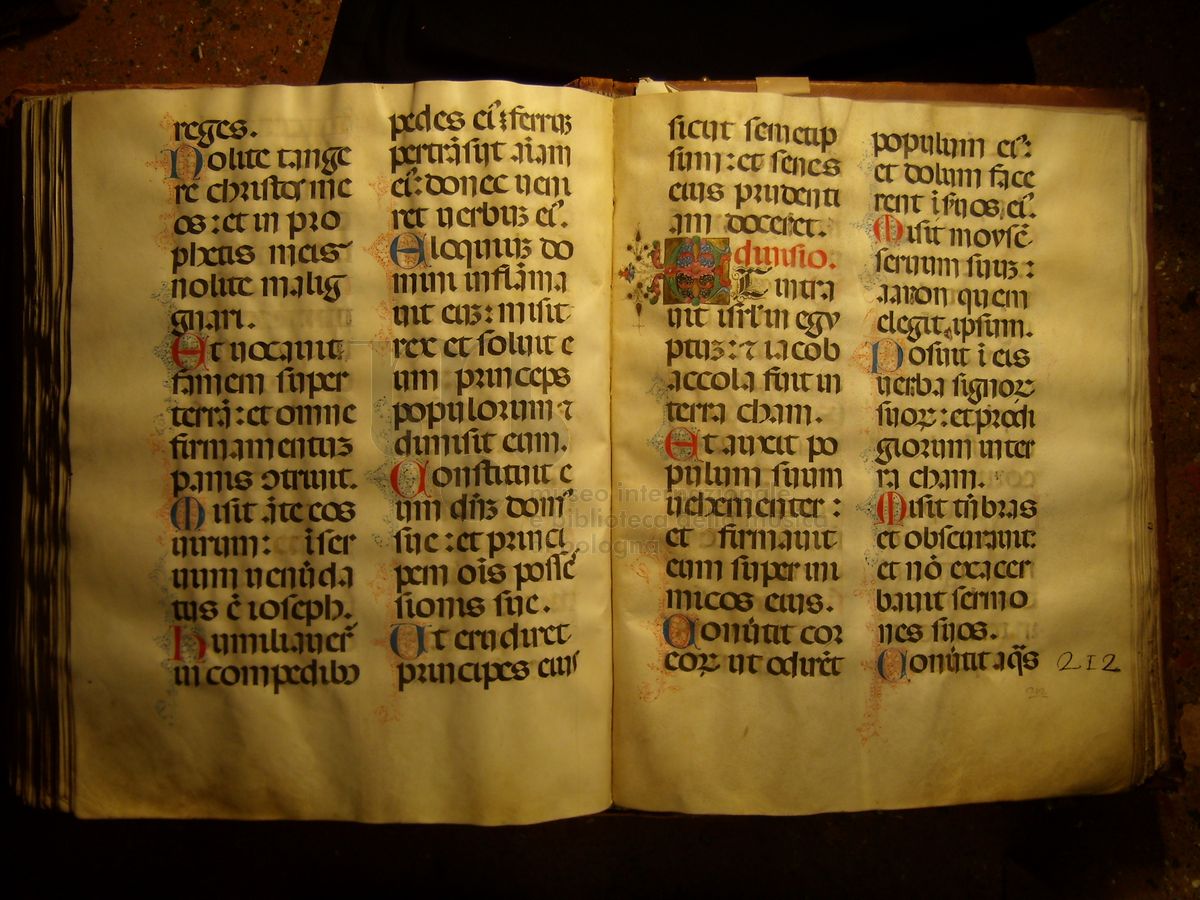 reges.
Nolite tange
re christos me
os: et in pro
phetis meis
nolite malig
gnari.
Et vocavit
famem super
terrā: et omne
firmamentuꝫ
panis ↄtrivit.
Misit āte eos
virum: ī ser
vum venūda
tus ē ioseph.
Humiliaver̄
in compedibꝰ
pedes eiꝰ: ferruꝫ
pertrāsijt aīam
eiꝰ: donec veni
ret verbuꝫ eiꝰ.
Eloquiuꝫ do
mini inflāma
vit euꝫ: misit
rex et solvit e
um princeps
populorum ⁊
dimisit eum.
Constituit e
um dn̄ꝫ domꝰ
sue: et princi
pem oīs posse
sionis sue.
Ut erudiret
principes eius
sicut semetip
sum: et senes
eius prudenti
am doceret.
diuisio.
Et intra
vit isrl̄ in egy
ptuꝫ: ⁊ iacob
accola fuit in
terra cham.
Et auxit po
pulum suum
vehementer:
et firmavit
eum super ini
micos eius.
Convertit cor
eoꝝ ut odirēt
populum eiꝰ:
et dolum face
rent ī svos eiꝰ.
Misit moysē
servum suuꝫ:
aaron quem
elegit ipsum.
Posuit ī eis
verba signoꝝ
suoꝝ: et prodi
giorum in ter
ra cham.
Misit tn̄bras
et obscuravit:
et nō exacer
bavit sermo
nes suos.
Convertit aq̄s
212
museo internazionale
e biblioteca della musica
bologna